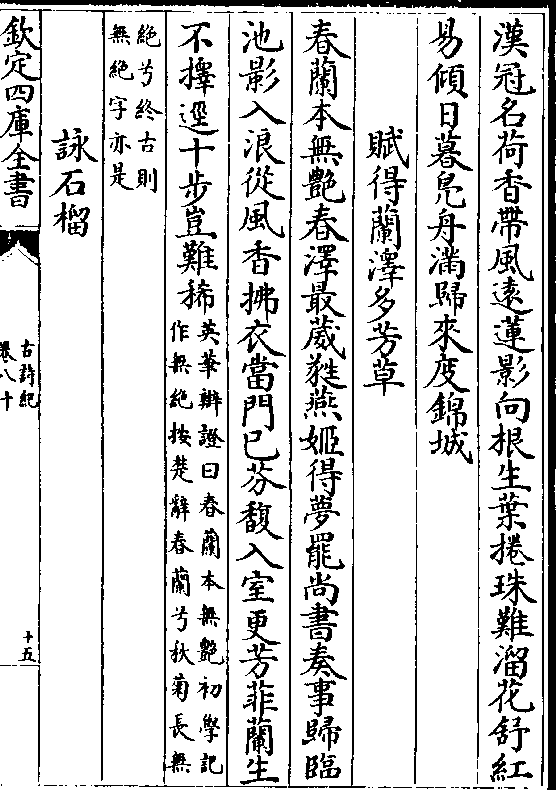 漢冠名荷香帶風遠蓮影向根生葉捲珠難溜花舒紅
易傾日暮鳧舟滿歸來度錦城
賦得蘭澤多芳草
春蘭本無豔春澤最葳蕤燕姬得夢罷尚書奏事歸臨
池影入浪從風香拂衣當門已芬馥入室更芳菲蘭生
不擇逕十步豈難稀
英華辨證曰春蘭本無艶初學記
作無絶按楚辭春蘭兮秋菊長無
絶兮終古則
無絶字亦是
詠石榴
欽定四庫全書
古詩紀
卷八十
十五